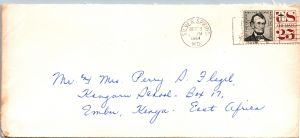 SILVER SPRING
PM
1964
MD.
US
25
Mr. & Mrs. Perry D.
Kangaru School - Box 17,
Embu, Kenya. East Africa